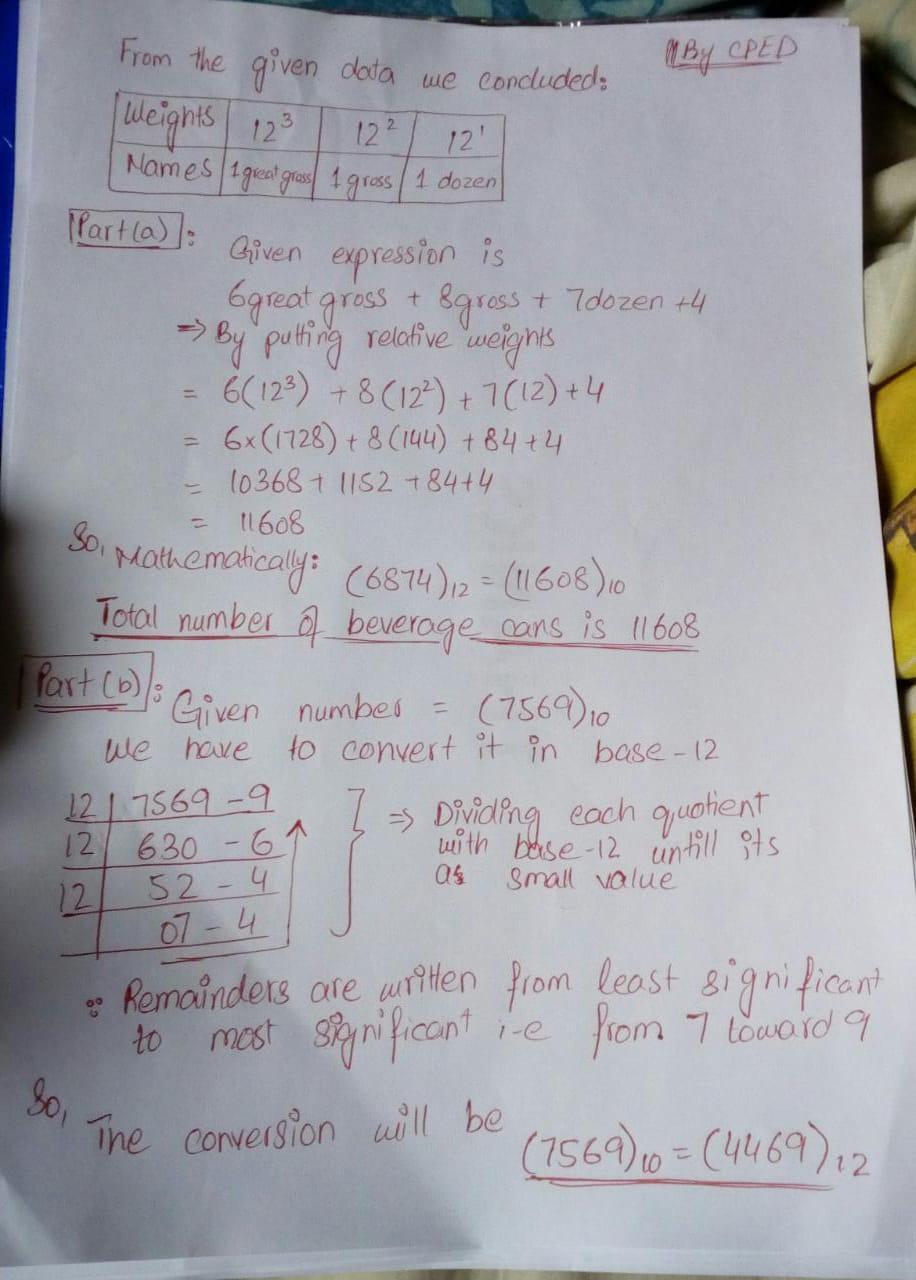 By CPED
From the given data we concluded:
Weights 12³ 12² 12¹
Names 1 great gross 1 gross 1 dozen
Part(a):
Given expression is
6great gross + 8gross + 7dozen +4
⇒ By putting relative weights
= 6(12³) + 8(12²) + 7(12) + 4
= 6x(1728) + 8(144) + 84 + 4
= 10368 + 1152 + 84+4
= 11608
So, Mathematically: (6874)₁₂ = (11608)₁₀
Total number of beverage cans is 11608
Part (b):
Given number = (7569)₁₀
we have to convert it in base-12
12 7569 - 9
12 630 - 6
12 52 - 4
07 - 4
⇒ Dividing each quotient
with base-12 untill its
as small value
∵ Remainders are written from least significant
to most significant i-e from 7 toward 9
So,
The conversion will be
(7569)₁₀ = (4469)₁₂